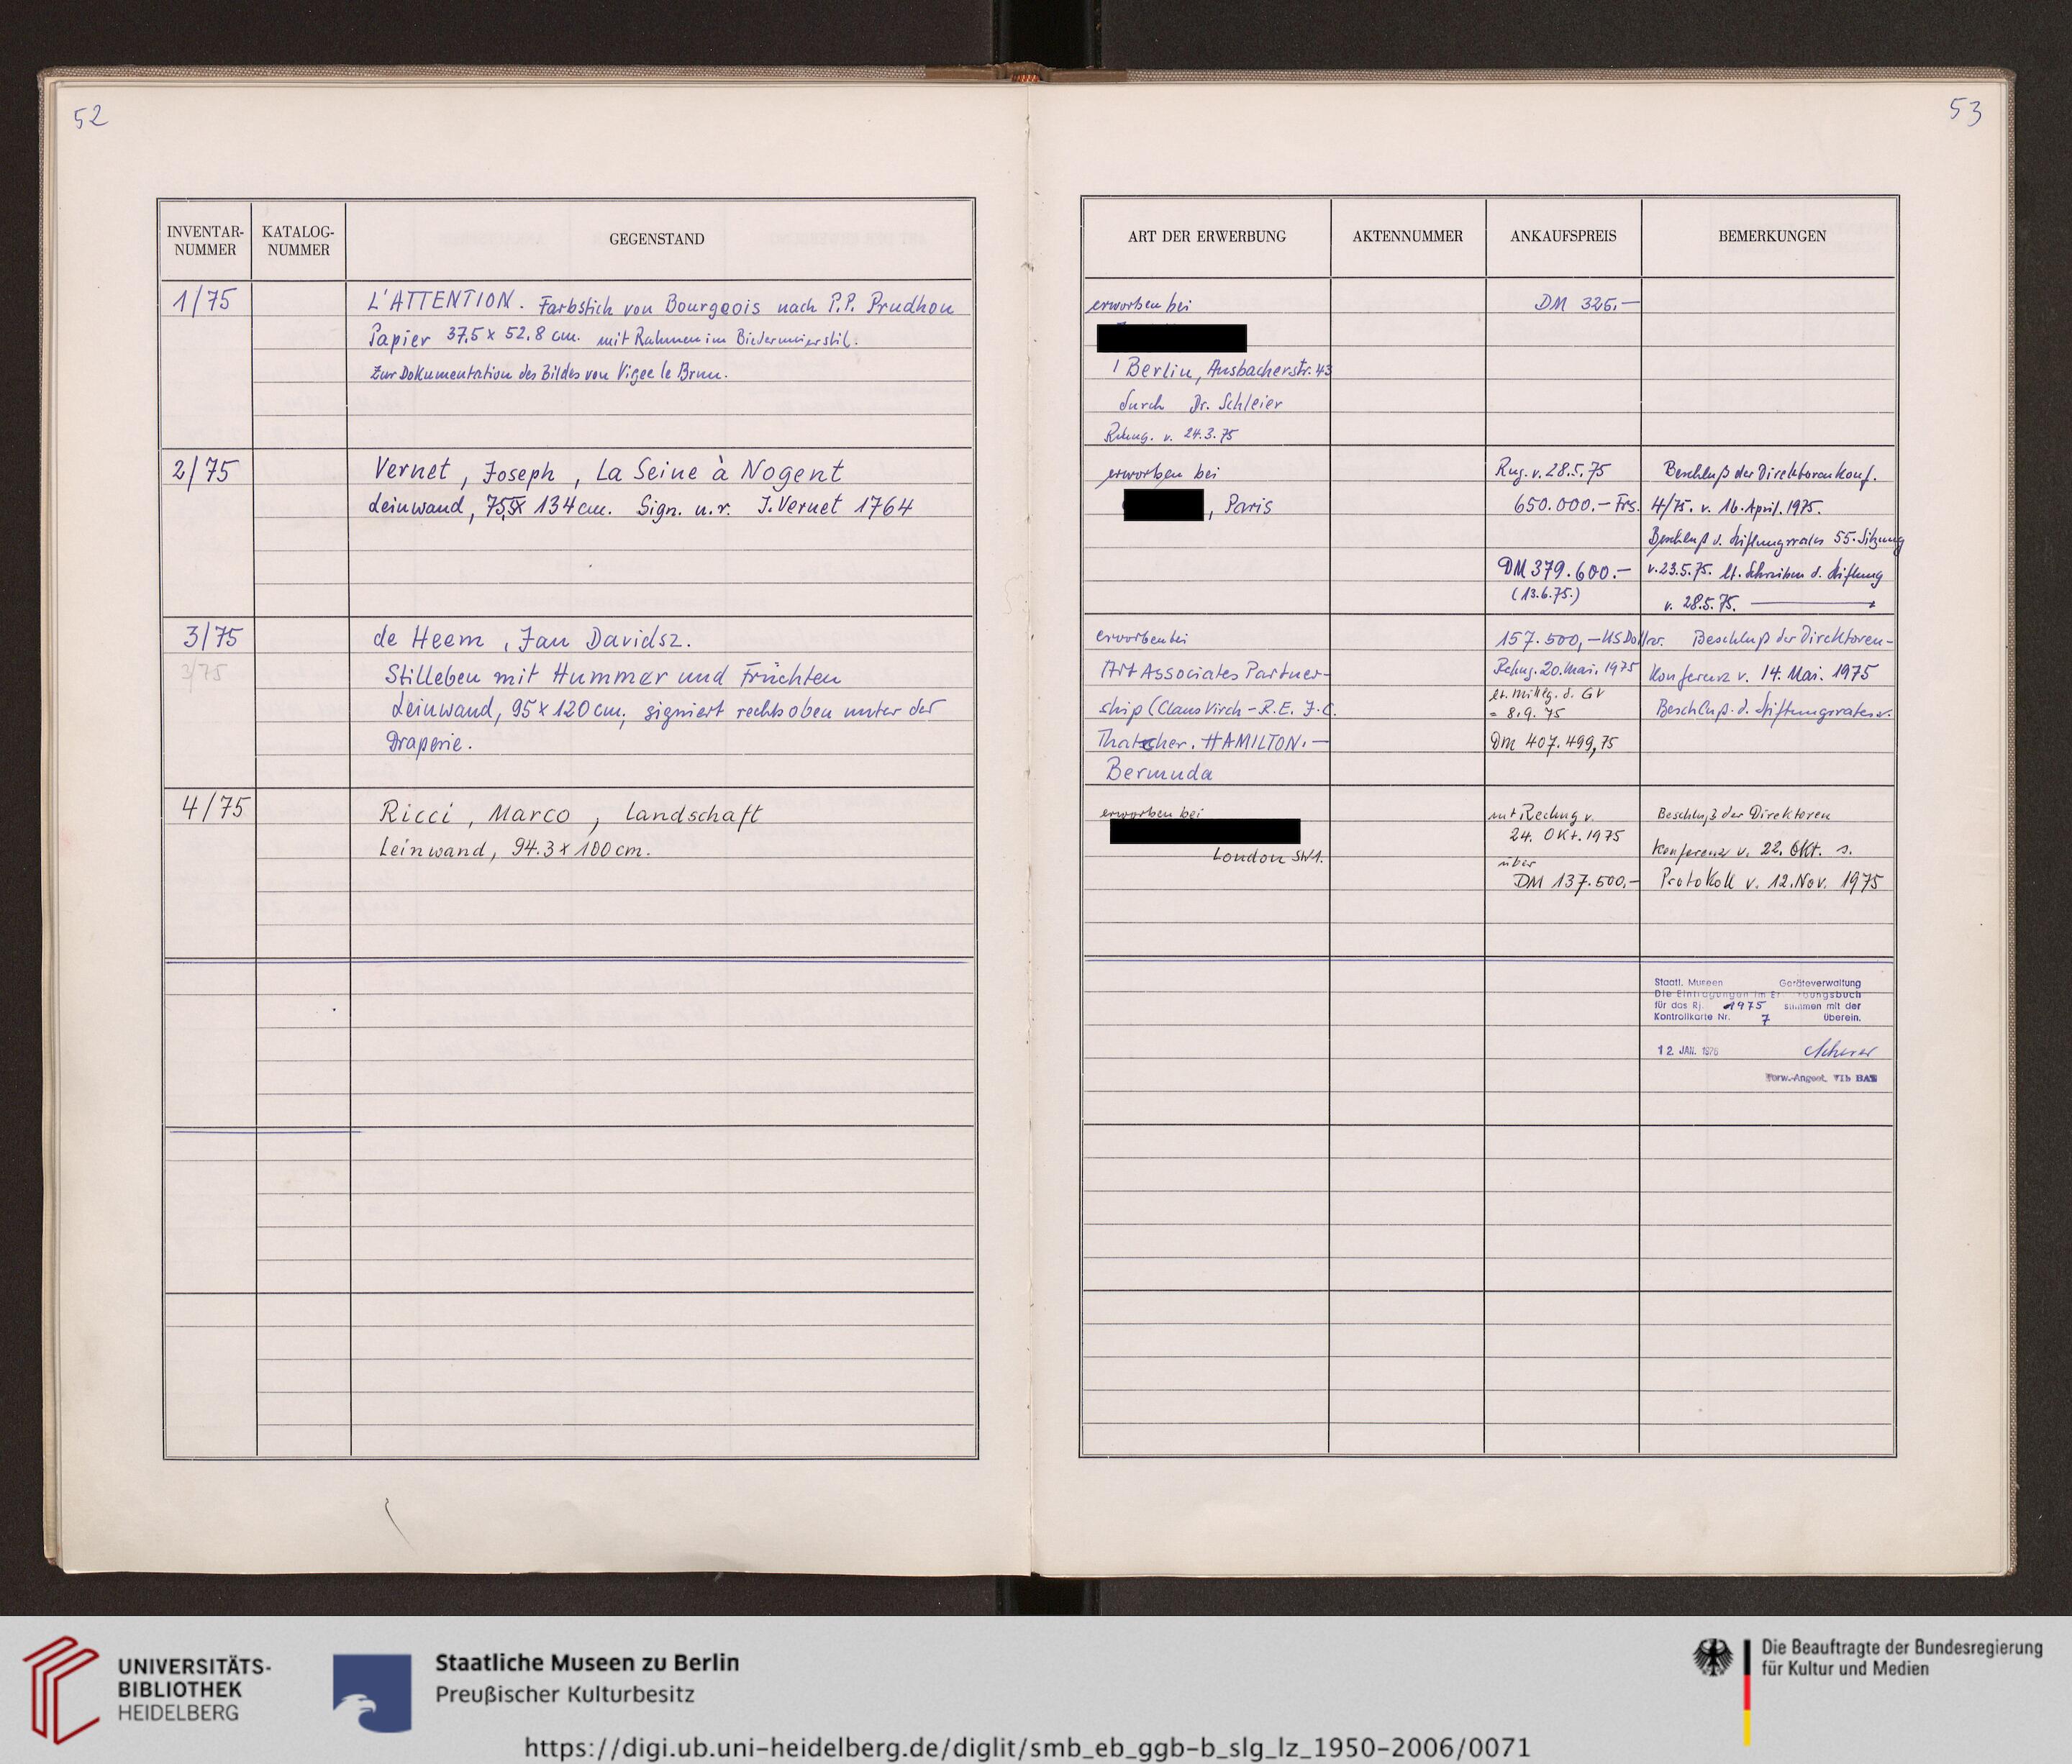 52
INVENTAR-
NUMMER
KATALOG-
NUMMER
GEGENSTAND
1/75
L'ATTENTION. Farbstich von Bourgeois nach P.P. Prudhon
Papier 37,5 x 52,8 cm. mit Rahmen im Biedermeierstil.
Zur Dokumentation des Bildes von Vigee le Brun.
2/75
Vernet, Joseph, La Seine à Nogent
Leinwand, 75,5x 134 cm. Sign. u.r. J. Vernet 1764
3/75
3/75
de Heem, Jan Davidsz.
Stilleben mit Hummer und Früchten
Leinwand, 95 x 120 cm; signiert rechts oben unter der
Draperie.
4/75
Ricci, Marco, Landschaft
Leinwand, 94.3 x 100 cm.
53
ART DER ERWERBUNG
AKTENNUMMER
ANKAUFSPREIS
BEMERKUNGEN
erworben bei
1 Berlin, Ansbacherstr. 43
durch Dr. Schleier
Rchng. v. 24.3.75
DM 325.—
erworben bei
, Paris
Rng. v. 28.5.75
650.000.— Frs.
DM 379.600.—
(13.6.75.)
Beschluß der Direktorenkonf.
4/75. v. 16. April. 1975.
Beschluß d. Stiftungsrates 55. Sitzung
v. 23.5.75. lt. Schreiben d. Stiftung
v. 28.5.75.
erworben bei
Art Associates Partner-
ship (Claus Virch - R.E. J.C.
Thatcher. HAMILTON. —
Bermuda
157.500,— US Dollar.
Rchng. 20. Mai. 1975
lt. Mitteg. d. GV
= 8.9. 75
Dm 407.499,75
Beschluß der Direktoren-
Konferenz v. 14. Mai. 1975
Beschluß. d. Stiftungsrates v.
erworben bei
London SW1.
mit Rechng v.
24. Okt. 1975
über
DM 137.500.-
Beschluß der Direktoren
Konferenz v. 22. Okt. s.
Protokoll v. 12. Nov. 1975
Staatl. Museen Geräteverwaltung
Die Eintragungen im
für das Rj. 1975 stimmen mit der
Kontrollkarte Nr. 7 überein.
12. JAN. 1976
Verw.-Angest. VIb BAT
UNIVERSITÄTS-
BIBLIOTHEK
HEIDELBERG
Staatliche Museen zu Berlin
Preußischer Kulturbesitz
Die Beauftragte der Bundesregierung
für Kultur und Medien
https://digi.ub.uni-heidelberg.de/diglit/smb_eb_ggb-b_slg_lz_1950-2006/0071